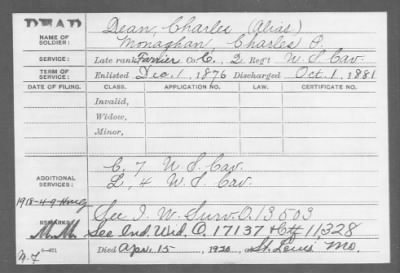 DEAD
NAME OF SOLDIER: Dean, Charles (Alias)
Monaghan, Charles P.
SERVICE: Late rank Farrier Co. C, 2 Reg't U S Cav.
TERM OF SERVICE: Enlisted Dec. 1, 1876 Discharged Oct. 1, 1881
DATE OF FILING. CLASS. APPLICATION NO. LAW. CERTIFICATE NO.
Invalid,
Widow,
Minor,
ADDITIONAL SERVICES: C, 7 U S Cav.
L, 4 U. S. Cav.
1918-4-9
REMARKS: See I. W. Surv. O. 13503
M.M. See Ind. Wid. O. 17137 Ctf 11328
Died Apr. 15, 1920, St. Louis Mo.